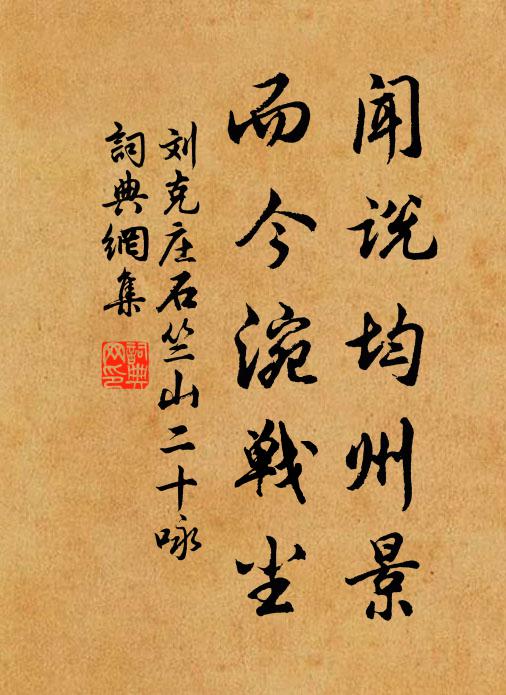 闻说均州景
而今涴戰尘
刘克庄石竺山二十咏
詞典網集
詞典网印